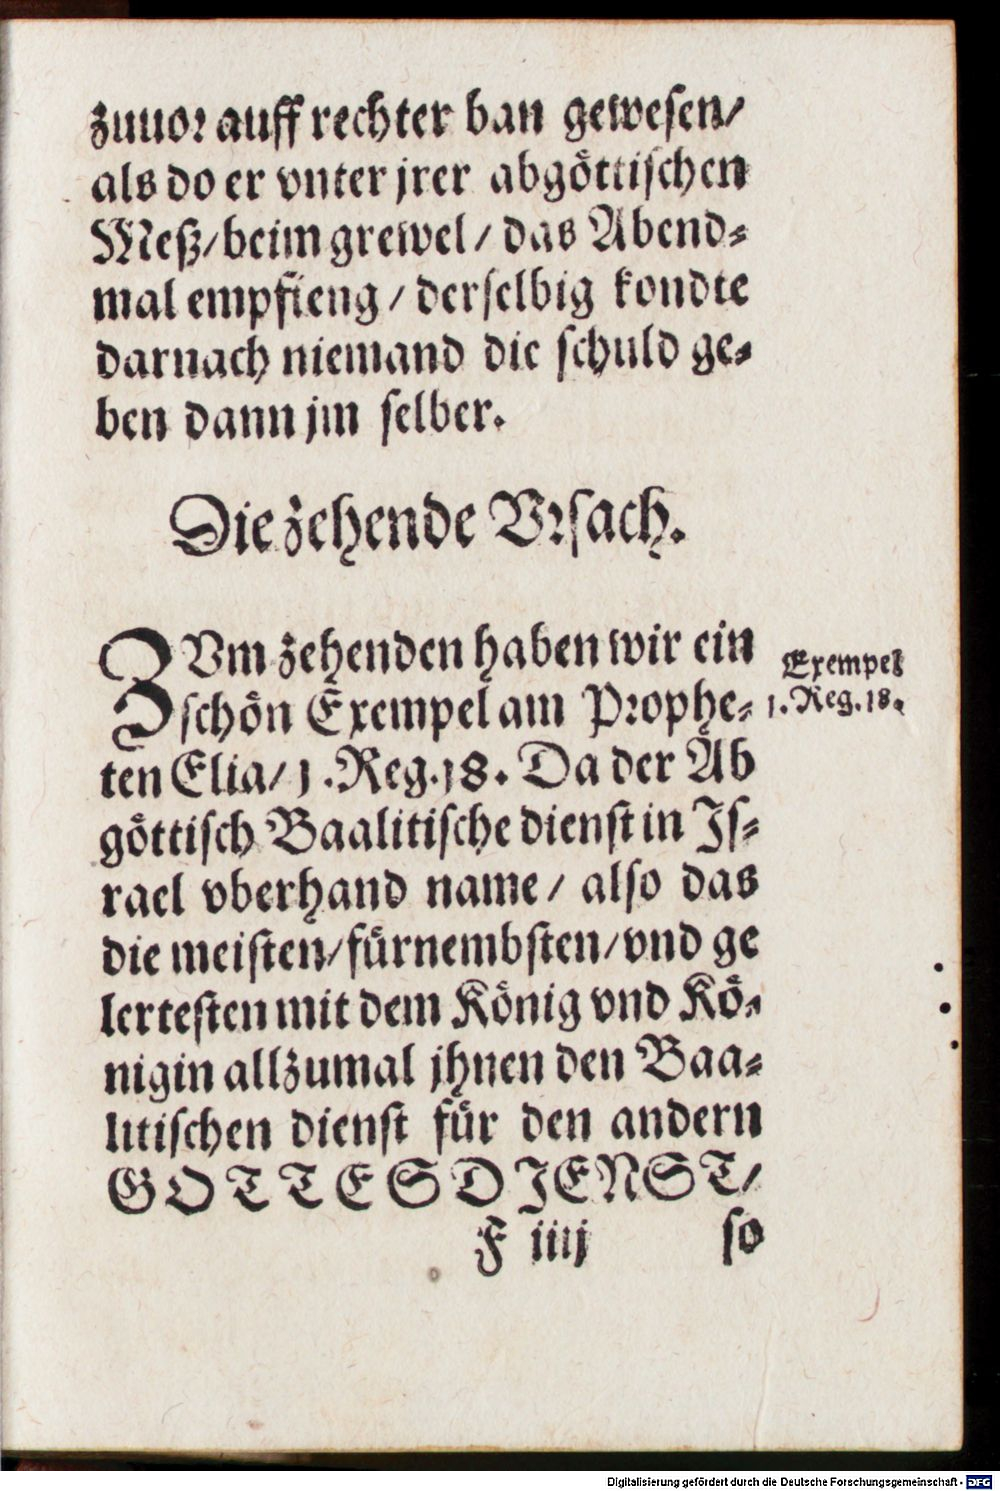 zuuor auff rechter ban gewesen/
als do er vnter jrer abgöttischen
Meß/ beim grewel / das Abend⸗
mal empfieng / derselbig kondte
darnach niemand die schuld ge⸗
ben dann jm selber.
Die zehende Vrsach.
ZVm zehenden haben wir ein
schön Exempel am Prophe⸗
ten Elia/ 1. Reg. 18. Da der Ab
göttisch Baalitische dienst in Js⸗
rael vberhand name / also das
die meisten/ fürnembsten/ vnd ge
lertesten mit dem König vnd Kö⸗
nigin allzumal jhnen den Baa⸗
litischen dienst für den andern
GOTTESDJENST/
F iiij so
Exempel
1. Reg. 18.
Digitalisierung gefördert durch die Deutsche Forschungsgemeinschaft - DFG